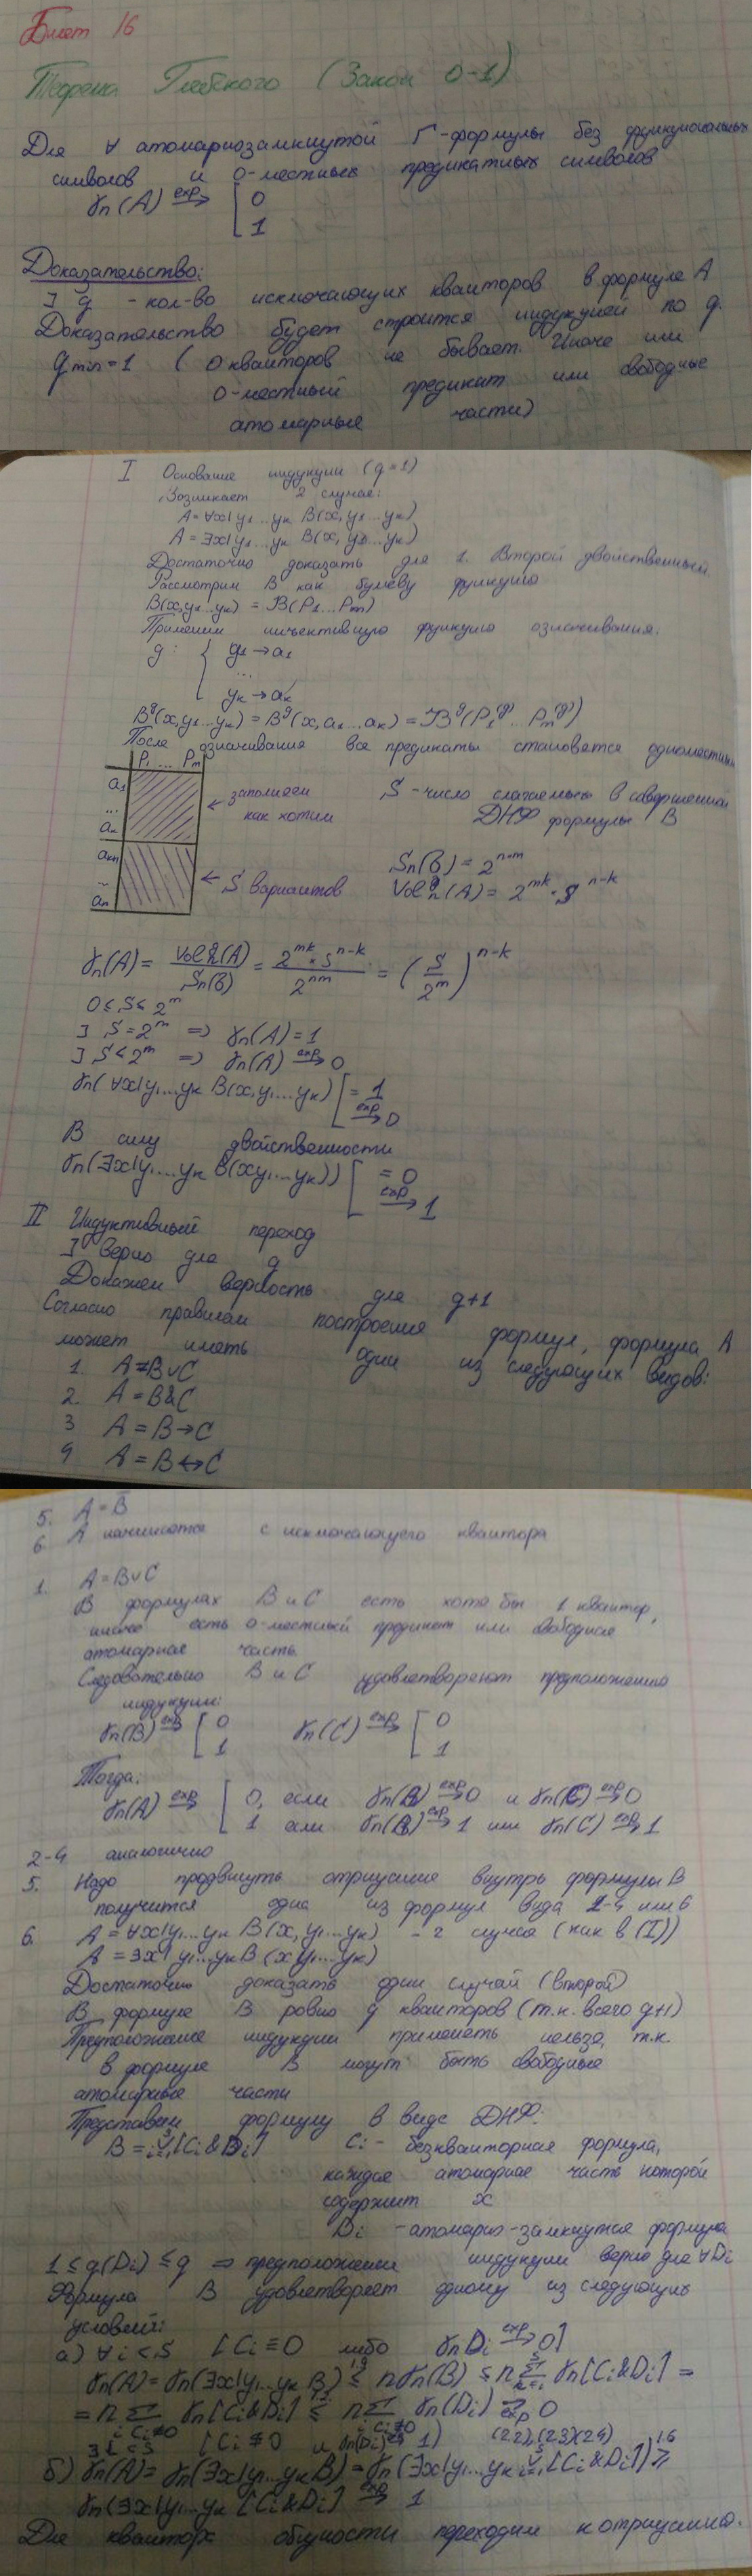 Билет 16
Теорема Глебского (Закон 0-1)
Для ∀ атомарнозамкнутой Г-формулы без функциональных
символов и 0-местных предикатных символов
γn(A) exp→ [ 0
1
Доказательство:
] q - кол-во исключающих кванторов в формуле A
Доказательство будет строится индукцией по q.
q min = 1 ( 0 кванторов не бывает. Иначе или
0-местный предикат или свободные
атомарные части)
I Основание индукции (q=1)
Возникает 2 случая:
A = ∀x|y1...yk B(x,y1...yk)
A = ∃x|y1...yk B(x,y1...yk)
Достаточно доказать для 1. Второй двойственный.
Рассмотрим B как булеву функцию
B(x,y1...yk) = B(P1...Pm)
Применим инъективную функцию означивания.
g: { y1→a1
...
yk→ak
B^g(x,y1...yk) = B^g(x,a1...ak) = B^g(P1^(g)...Pm^(g))
После означивания все предикаты становятся одноместными
P1 ... Pm
a1
...
ak
ak+1
~
an
← заполняем
как хотим
← S вариантов
S - число слагаемых в совершенной
ДНФ формулы B
Sn(б) = 2^(n·m)
Vol^g n(A) = 2^(mk) · S^(n-k)
γn(A) = Vol^g n(A) / Sn(б) = 2^(mk) · S^(n-k) / 2^(nm) = (S / 2^m)^(n-k)
0 ≤ S ≤ 2^m
] S = 2^m => γn(A) = 1
] S < 2^m => γn(A) exp→ 0
γn(∀x|y1...yk B(x,y1...yk)) [ = 1
exp→ 0
В силу двойственности
γn(∃x|y1...yk B(x y1...yk)) [ = 0
exp→ 1
II Индуктивный переход
] верно для q
Докажем верность для q+1
Согласно правилам построения формул, формула A
может иметь один из следующих видов:
1. A=B∨C
2. A=B&C
3 A=B→C
4 A=B↔C
5. A=B̄
6. A начинается с исключающего квантора
1. A=B∨C
В формулах B и C есть хотя бы 1 квантор,
иначе есть 0-местный предикат или свободная
атомарная часть.
Следовательно B и C удовлетворяют предположению
индукции:
γn(B) exp→ [ 0
1
γn(C) exp→ [ 0
1
Тогда:
γn(A) exp→ [ 0, если γn(B) exp→ 0 и γn(C) exp→ 0
1 если γn(B) exp→ 1 или γn(C) exp→ 1
2-4 аналогично
5. Надо продвинуть отрицание внутрь формулы B
получится одна из формул вида 1-4 или 6
6. A = ∀x|y1...yk B(x,y1...yk) - 2 случая (как в (I))
A = ∃x|y1...yk B(x y1...yk)
Достаточно доказать один случай (второй)
В формуле B ровно q кванторов (т.к. всего q+1)
Предположение индукции применять нельзя, т.к.
в формуле B могут быть свободные
атомарные части
Представим формулу в виде ДНФ:
B = s∨i=1 [Ci & Di]
Ci - безкванторная формула,
каждая атомарная часть которой
содержит x
Di - атомарно-замкнутая формула
1 ≤ q(Di) ≤ q => предположении индукции верно для ∀Di
Формула B удовлетворяет одному из следующих
условий:
а) ∀i ≤ S [Ci ≡ 0 либо γn Di exp→ 0]
γn(A) = γn(∃x|y1...yk B) ≤ nγn(B) ≤ n Σ γn[Ci&Di] =
= n Σ γn[Ci&Di] ≤ n Σ γn(Di) exp→ 0
i Ci≢0
i Ci≢0
(22),(23)(24)
∃i ≤ S [Ci ≢ 0 и γn(Di) → 1)
1.6
б) γn(A) = γn(∃x|y1...yk B) = γn(∃x|y1...yk s∨i=1 [Ci&Di]) ≥
γn(∃x|y1...yk [Ci&Di] exp→ 1
Для квантора общности переходим к отрицанию.